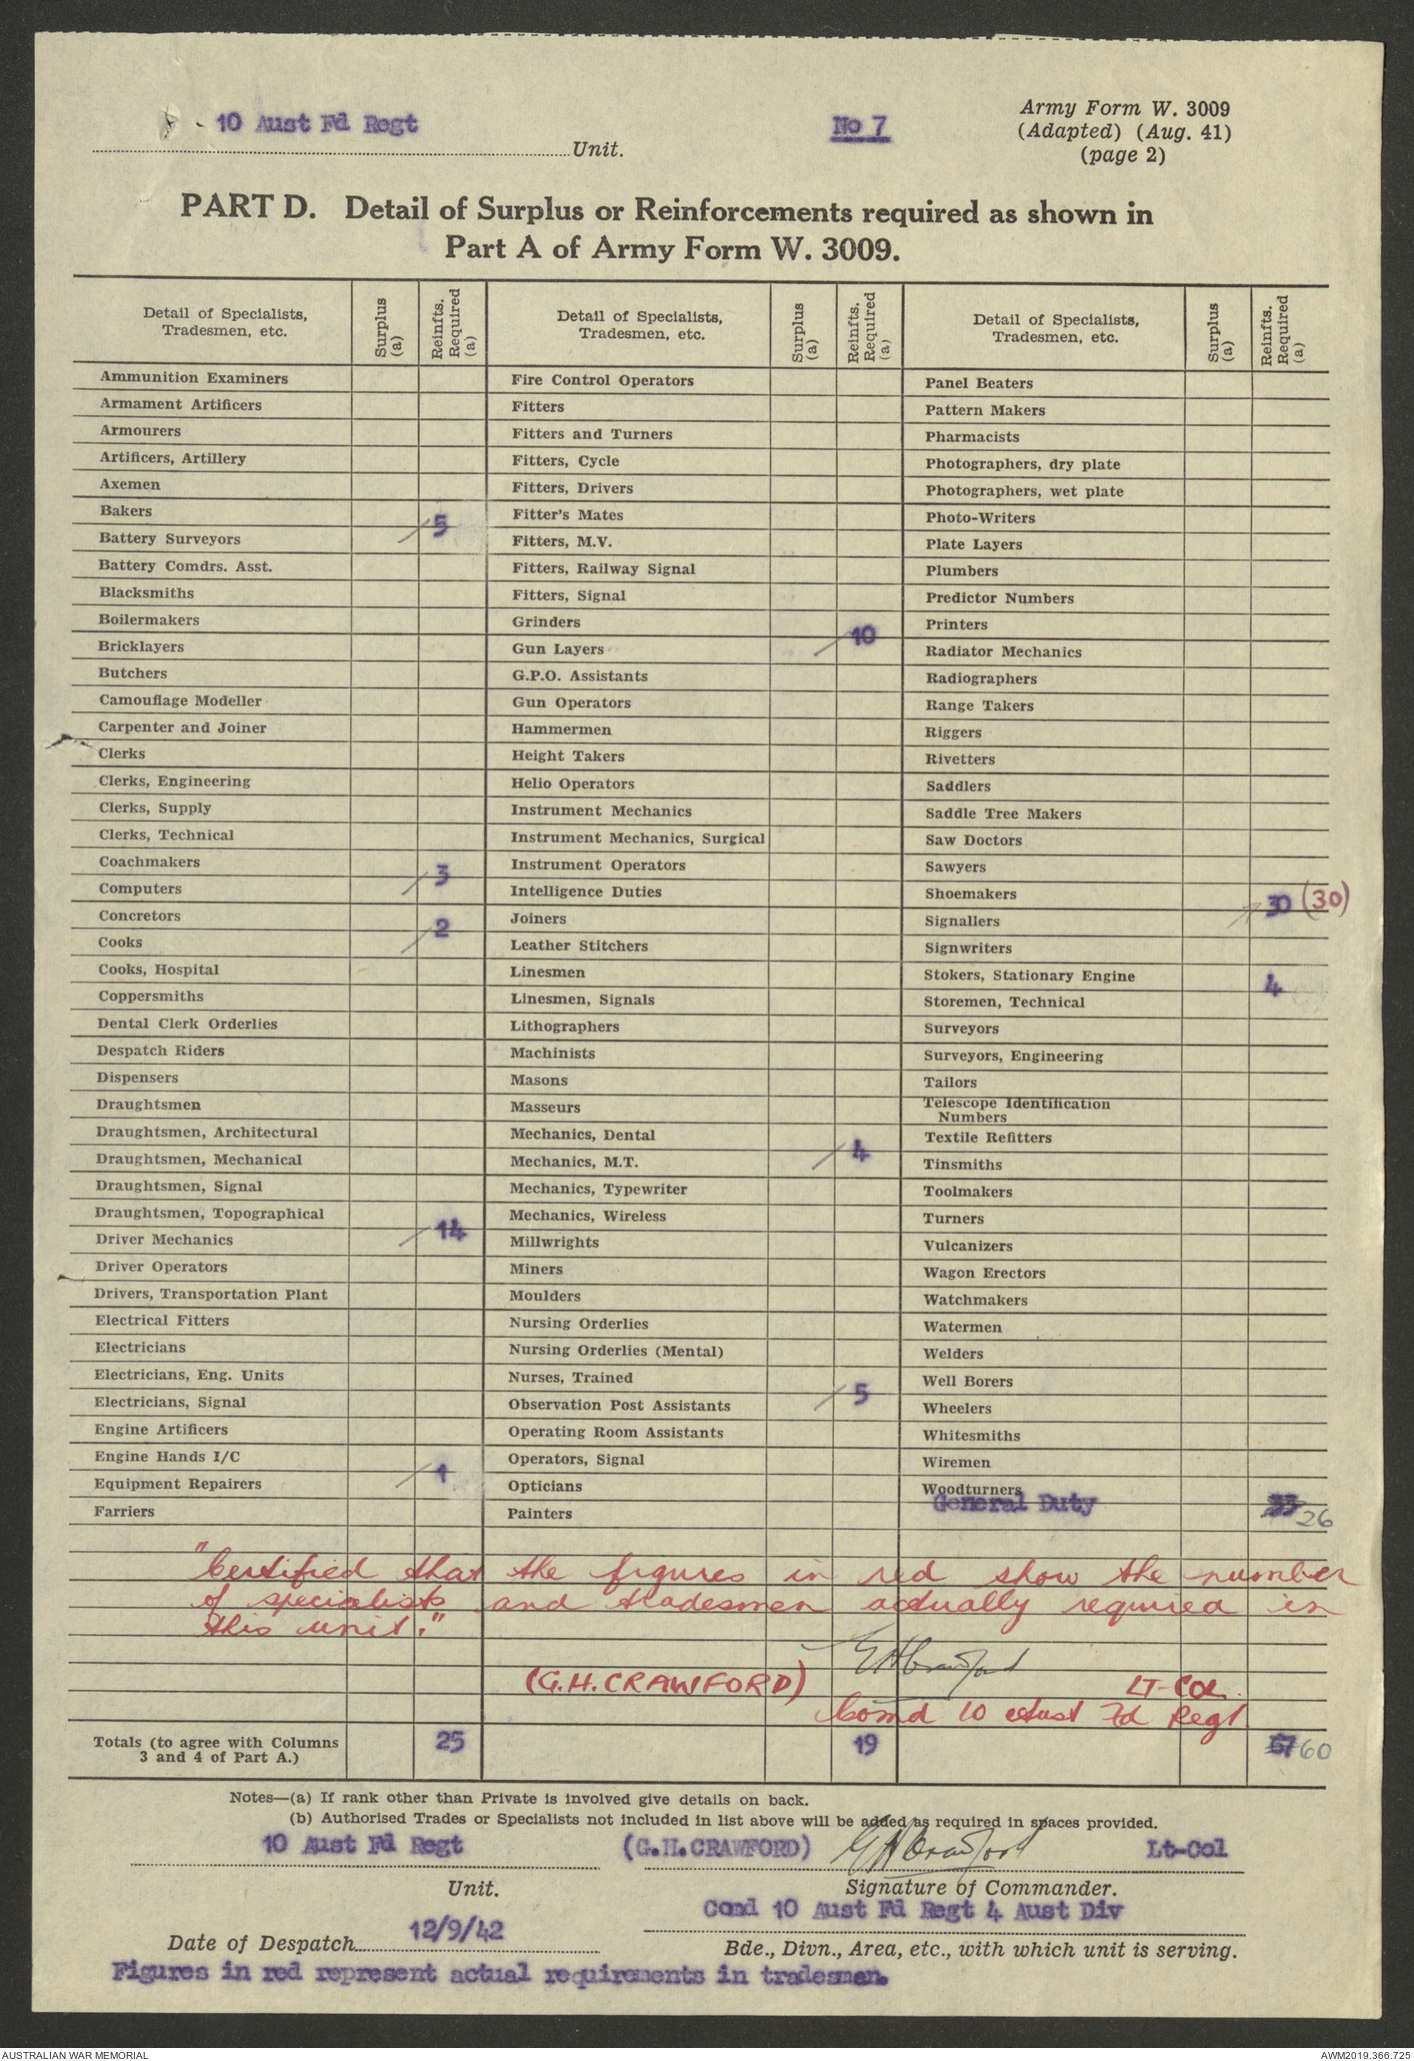 10 Aust Fd Regt
Unit.
No 7
Army Form W. 3009
(Adapted) (Aug. 41)
(page 2)
PART D. Detail of Surplus or Reinforcements required as shown in
Part A of Army Form W. 3009.
Detail of Specialists,
Tradesmen, etc.
Surplus
(a)
Reinfts.
Required
(a)
Ammunition Examiners
Armament Artificers
Armourers
Artificers, Artillery
Axemen
Bakers
Battery Surveyors 5
Battery Comdrs. Asst.
Blacksmiths
Boilermakers
Bricklayers
Butchers
Camouflage Modeller
Carpenter and Joiner
Clerks
Clerks, Engineering
Clerks, Supply
Clerks, Technical
Coachmakers
Computers 3
Concretors
Cooks 2
Cooks, Hospital
Coppersmiths
Dental Clerk Orderlies
Despatch Riders
Dispensers
Draughtsmen
Draughtsmen, Architectural
Draughtsmen, Mechanical
Draughtsmen, Signal
Draughtsmen, Topographical
Driver Mechanics 14
Driver Operators
Drivers, Transportation Plant
Electrical Fitters
Electricians
Electricians, Eng. Units
Electricians, Signal
Engine Artificers
Engine Hands I/C
Equipment Repairers 1
Farriers
Detail of Specialists,
Tradesmen, etc.
Surplus
(a)
Reinfts.
Required
(a)
Fire Control Operators
Fitters
Fitters and Turners
Fitters, Cycle
Fitters, Drivers
Fitter's Mates
Fitters, M.V.
Fitters, Railway Signal
Fitters, Signal
Grinders
Gun Layers 10
G.P.O. Assistants
Gun Operators
Hammermen
Height Takers
Helio Operators
Instrument Mechanics
Instrument Mechanics, Surgical
Instrument Operators
Intelligence Duties
Joiners
Leather Stitchers
Linesmen
Linesmen, Signals
Lithographers
Machinists
Masons
Masseurs
Mechanics, Dental
Mechanics, M.T. 4
Mechanics, Typewriter
Mechanics, Wireless
Millwrights
Miners
Moulders
Nursing Orderlies
Nursing Orderlies (Mental)
Nurses, Trained
Observation Post Assistants 5
Operating Room Assistants
Operators, Signal
Opticians
Painters
Detail of Specialists,
Tradesmen, etc.
Surplus
(a)
Reinfts.
Required
(a)
Panel Beaters
Pattern Makers
Pharmacists
Photographers, dry plate
Photographers, wet plate
Photo-Writers
Plate Layers
Plumbers
Predictor Numbers
Printers
Radiator Mechanics
Radiographers
Range Takers
Riggers
Rivetters
Saddlers
Saddle Tree Makers
Saw Doctors
Sawyers
Shoemakers
Signallers 30 (30)
Signwriters
Stokers, Stationary Engine
Storemen, Technical 4
Surveyors
Surveyors, Engineering
Tailors
Telescope Identification
Numbers
Textile Refitters
Tinsmiths
Toolmakers
Turners
Vulcanizers
Wagon Erectors
Watchmakers
Watermen
Welders
Well Borers
Wheelers
Whitesmiths
Wiremen
Woodturners
General Duty 33 26
"Certified that the figures in red show the number
of specialists and tradesmen actually required in
this unit."
GHCrawford
(G.H.CRAWFORD) LT-COL.
Comd 10 Aust Fd Regt
Totals (to agree with Columns
3 and 4 of Part A.) 25 19 67 60
Notes—(a) If rank other than Private is involved give details on back.
(b) Authorised Trades or Specialists not included in list above will be added as required in spaces provided.
10 Aust Fd Regt (G.H.CRAWFORD) GHCrawford Lt-Col
Unit. Signature of Commander.
Comd 10 Aust Fd Regt 4 Aust Div
Date of Despatch 12/9/42
Bde., Divn., Area, etc., with which unit is serving.
Figures in red represent actual requirements in tradesmen.
AUSTRALIAN WAR MEMORIAL
AWM2019.366.725